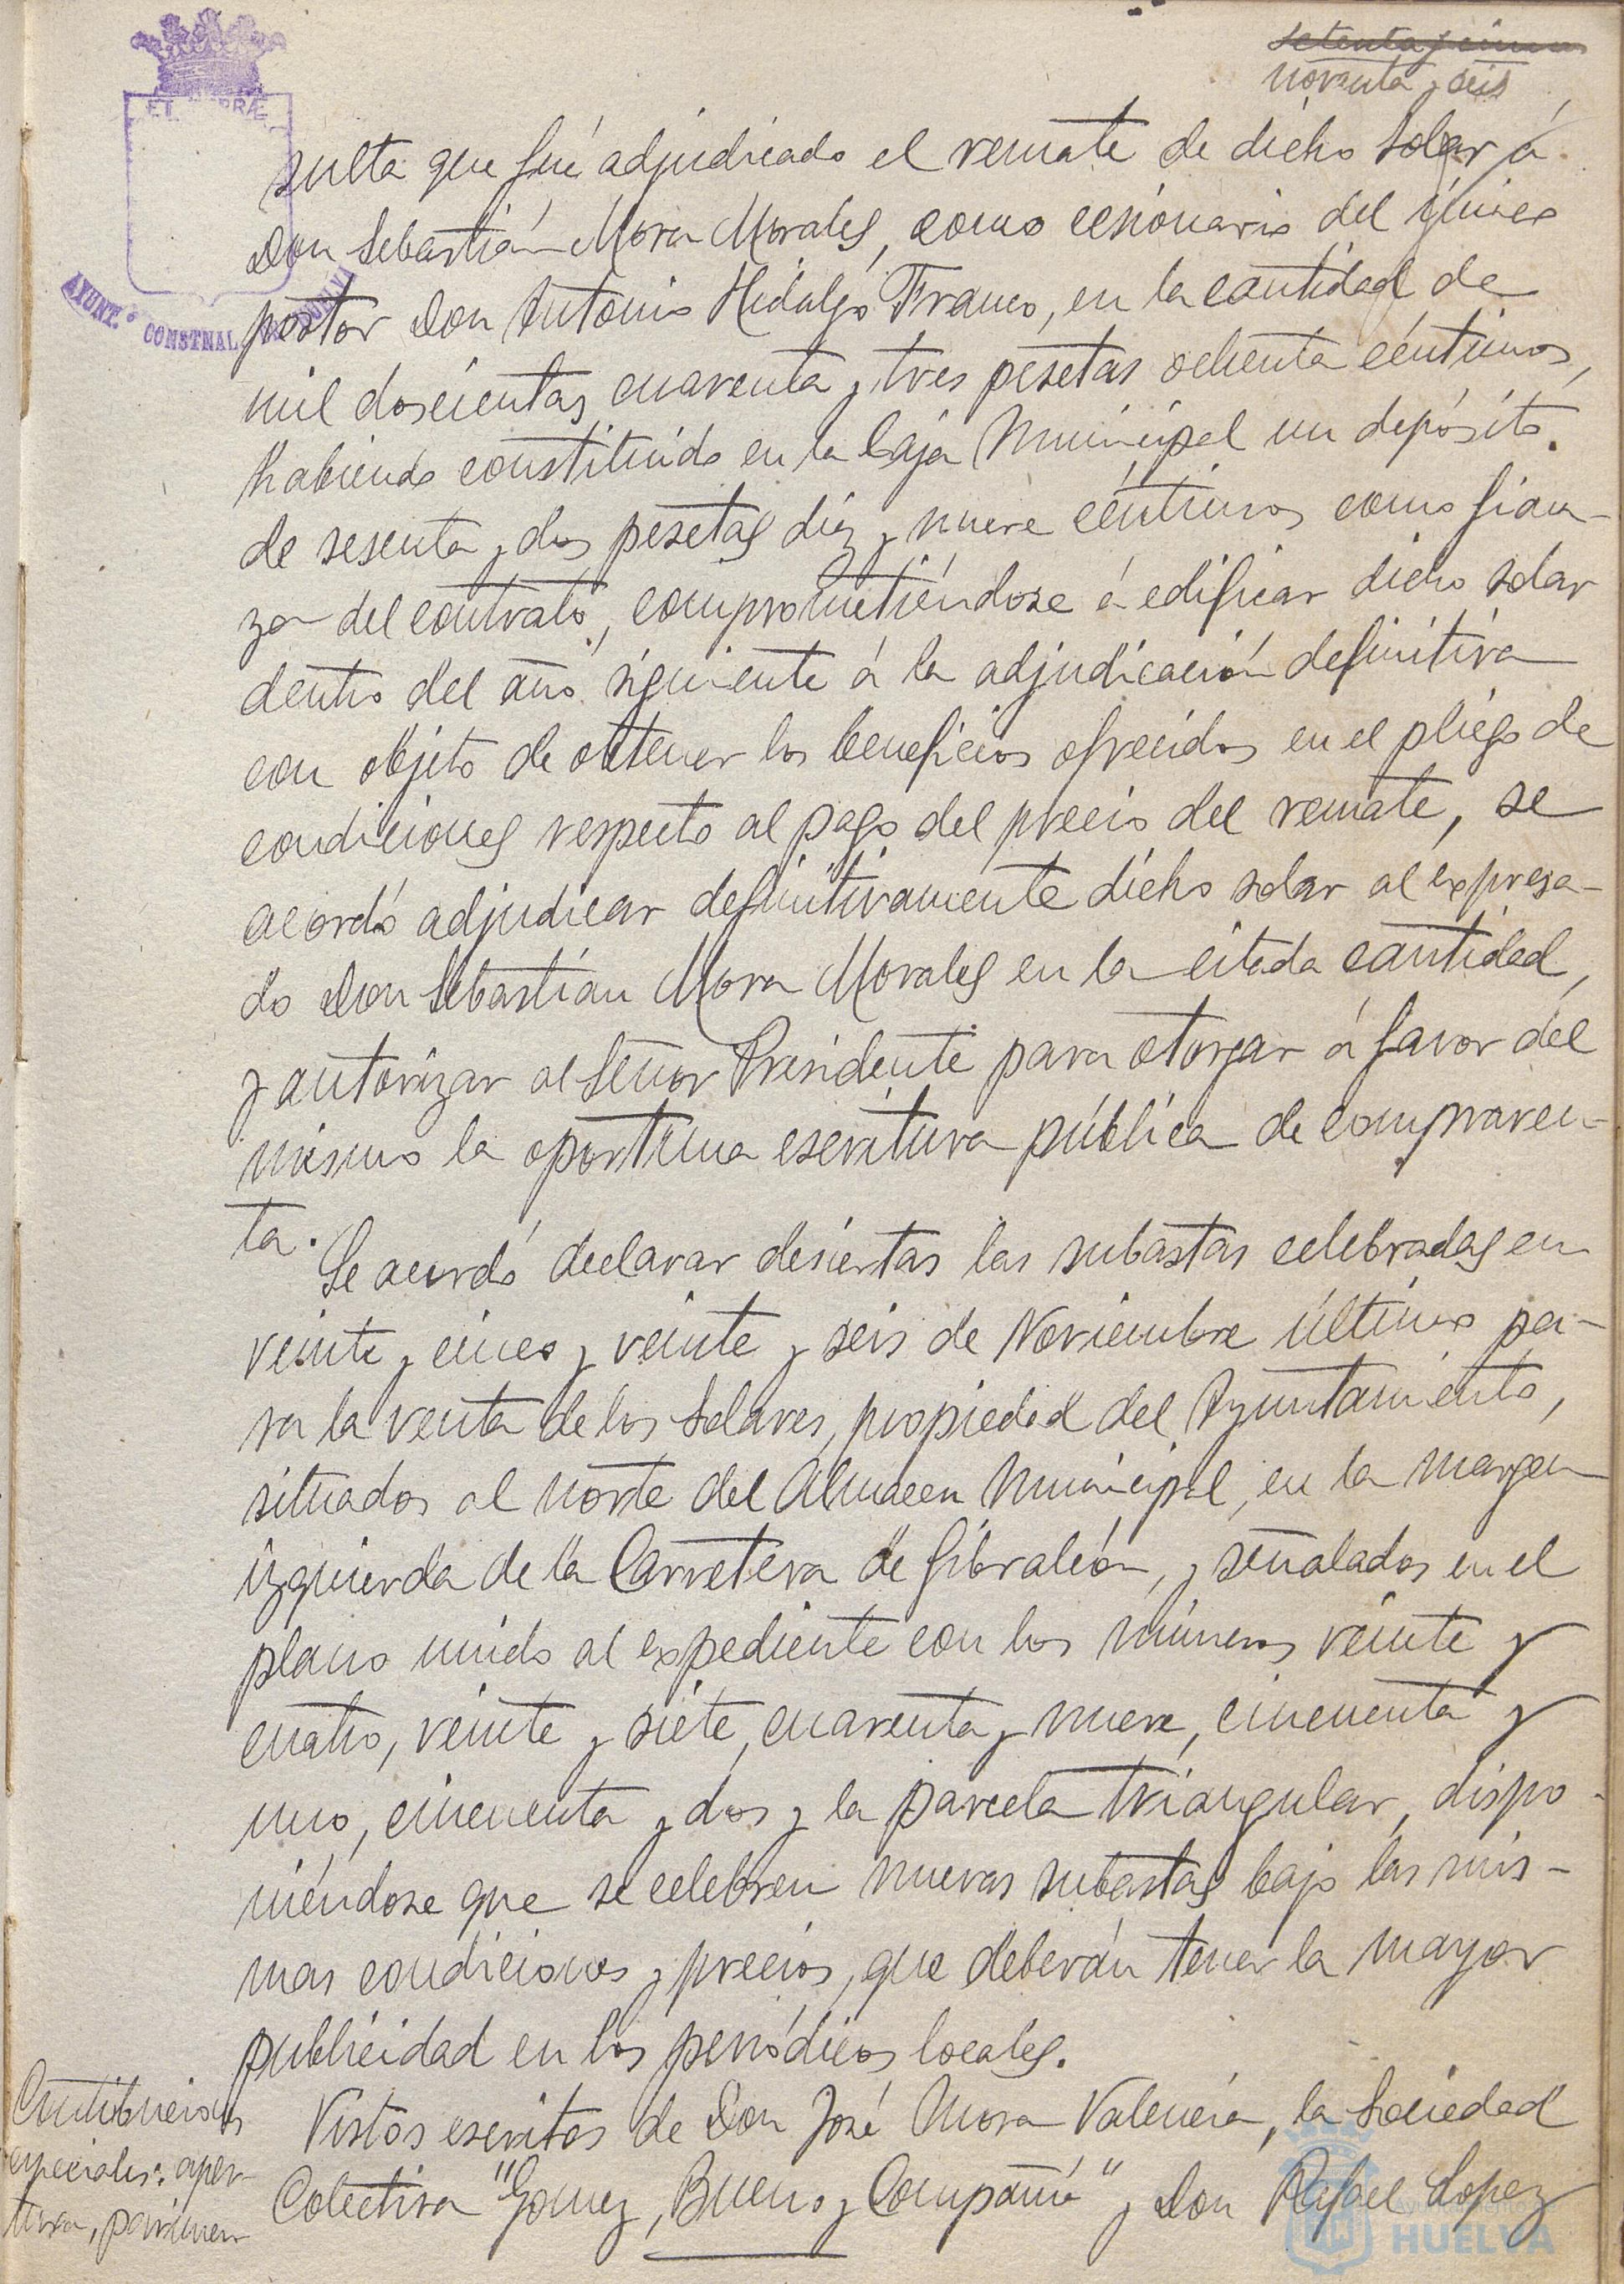 noventa y seis
sulta que fué adjudicado el remate de dicho solar á
Don Sebastián Mora Morales, como cesionario del único
postor Don Antonio Hidalgo Franco, en la cantidad de
mil doscientas cuarenta y tres pesetas ochenta céntimos,
habiendo constituido en la Caja Municipal un depósito
de sesenta y dos pesetas diez y nueve céntimos como fian-
za del contrato, comprometiéndose á edificar dicho solar
dentro del año siguiente á la adjudicación definitiva
con objeto de obtener los beneficios ofrecidos en el pliego de
condiciones respecto al pago del precio del remate, se
acordó adjudicar definitivamente dicho solar al expresa-
do Don Sebastián Mora Morales en la citada cantidad,
y autorizar al Señor Presidente para otorgar á favor del
mismo la oportuna escritura pública de compraven-
ta.
Se acordó declarar desiertas las subastas celebradas en
veinte y cinco y veinte y seis de Noviembre último pa-
ra la venta de los Solares, propiedad del Ayuntamiento,
situados al norte del Almacen Municipal, en la margen
izquierda de la Carretera de Gibraleón, y señalados en el
plano unido al expediente con los números veinte y
cuatro, veinte y siete, cuarenta y nueve, cincuenta y
uno, cincuenta y dos y la parcela triangular, dispo-
niéndose que se celebren nuevas subastas bajo las mis-
mas condiciones y precios, que deberán tener la mayor
publicidad en los periódicos locales.
Contribuciones
especiales: aper-
tura, pavimen
Vistos escritos de Don José Mora Valencia, la Sociedad
Colectiva "Gomez, Bueno y Compañía" y Don Rafael Lopez
ET TERRÆ
AYUNT.º CONSTNAL.
HUELVA